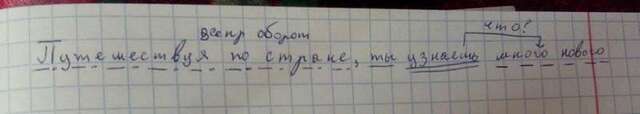 деепр оборот что?
Путешествуя по стране, ты узнаешь много нового